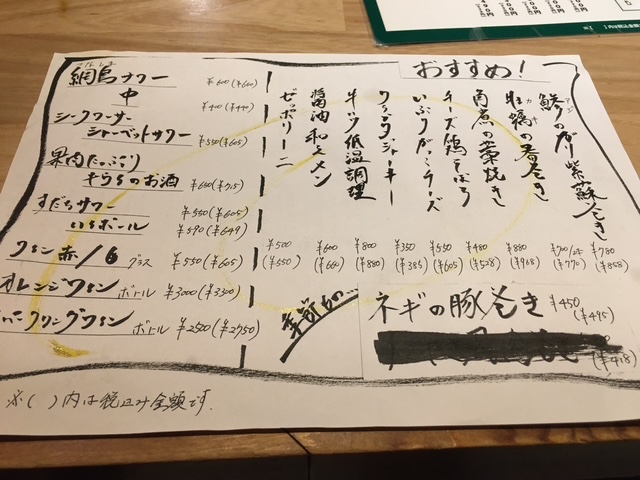 おすすめ!
鯵のガリ紫蘇巻き
アジ
¥780
(¥858)
牡蠣の春巻き
カキ
¥700/2本
(¥770)
角煮の藁焼き
¥880
(¥968)
チーズ鶏そぼろ
¥480
(¥528)
いぶりがっこチーズ
¥550
(¥605)
¥350
(¥385)
牛タン低温調理
¥800
(¥880)
醤油和えメン
¥600
(¥660)
ゼッポリーニ
¥500
(¥550)
季節もの…
ネギの豚巻き ¥450
(¥495)
(¥418)
網島サワー ¥600(¥660)
中 ¥400(¥440)
シークワーサー
シャーベットサワー ¥550(¥605)
果肉たっぷり
そららのお酒 ¥650(¥715)
すだちサワー ¥550(¥605)
いちボール ¥590(¥649)
ワイン赤/白 グラス ¥550(¥605)
オレンジワイン ボトル ¥3000(¥3300)
パークリングワイン ボトル ¥2500(¥2750)
※( )内は税込み金額です。